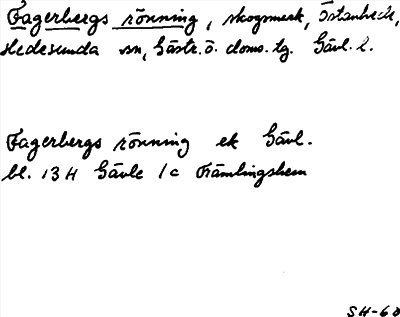 Fagerbergs rönning, skogsmark, Östanhede,
Hedesunda sn, Gästr. ö. doms. tg. Gävl. l.
Fagerbergs rönning ek Gävl.
bl. 13 H Gävle 1c Främlingshem
SH-68